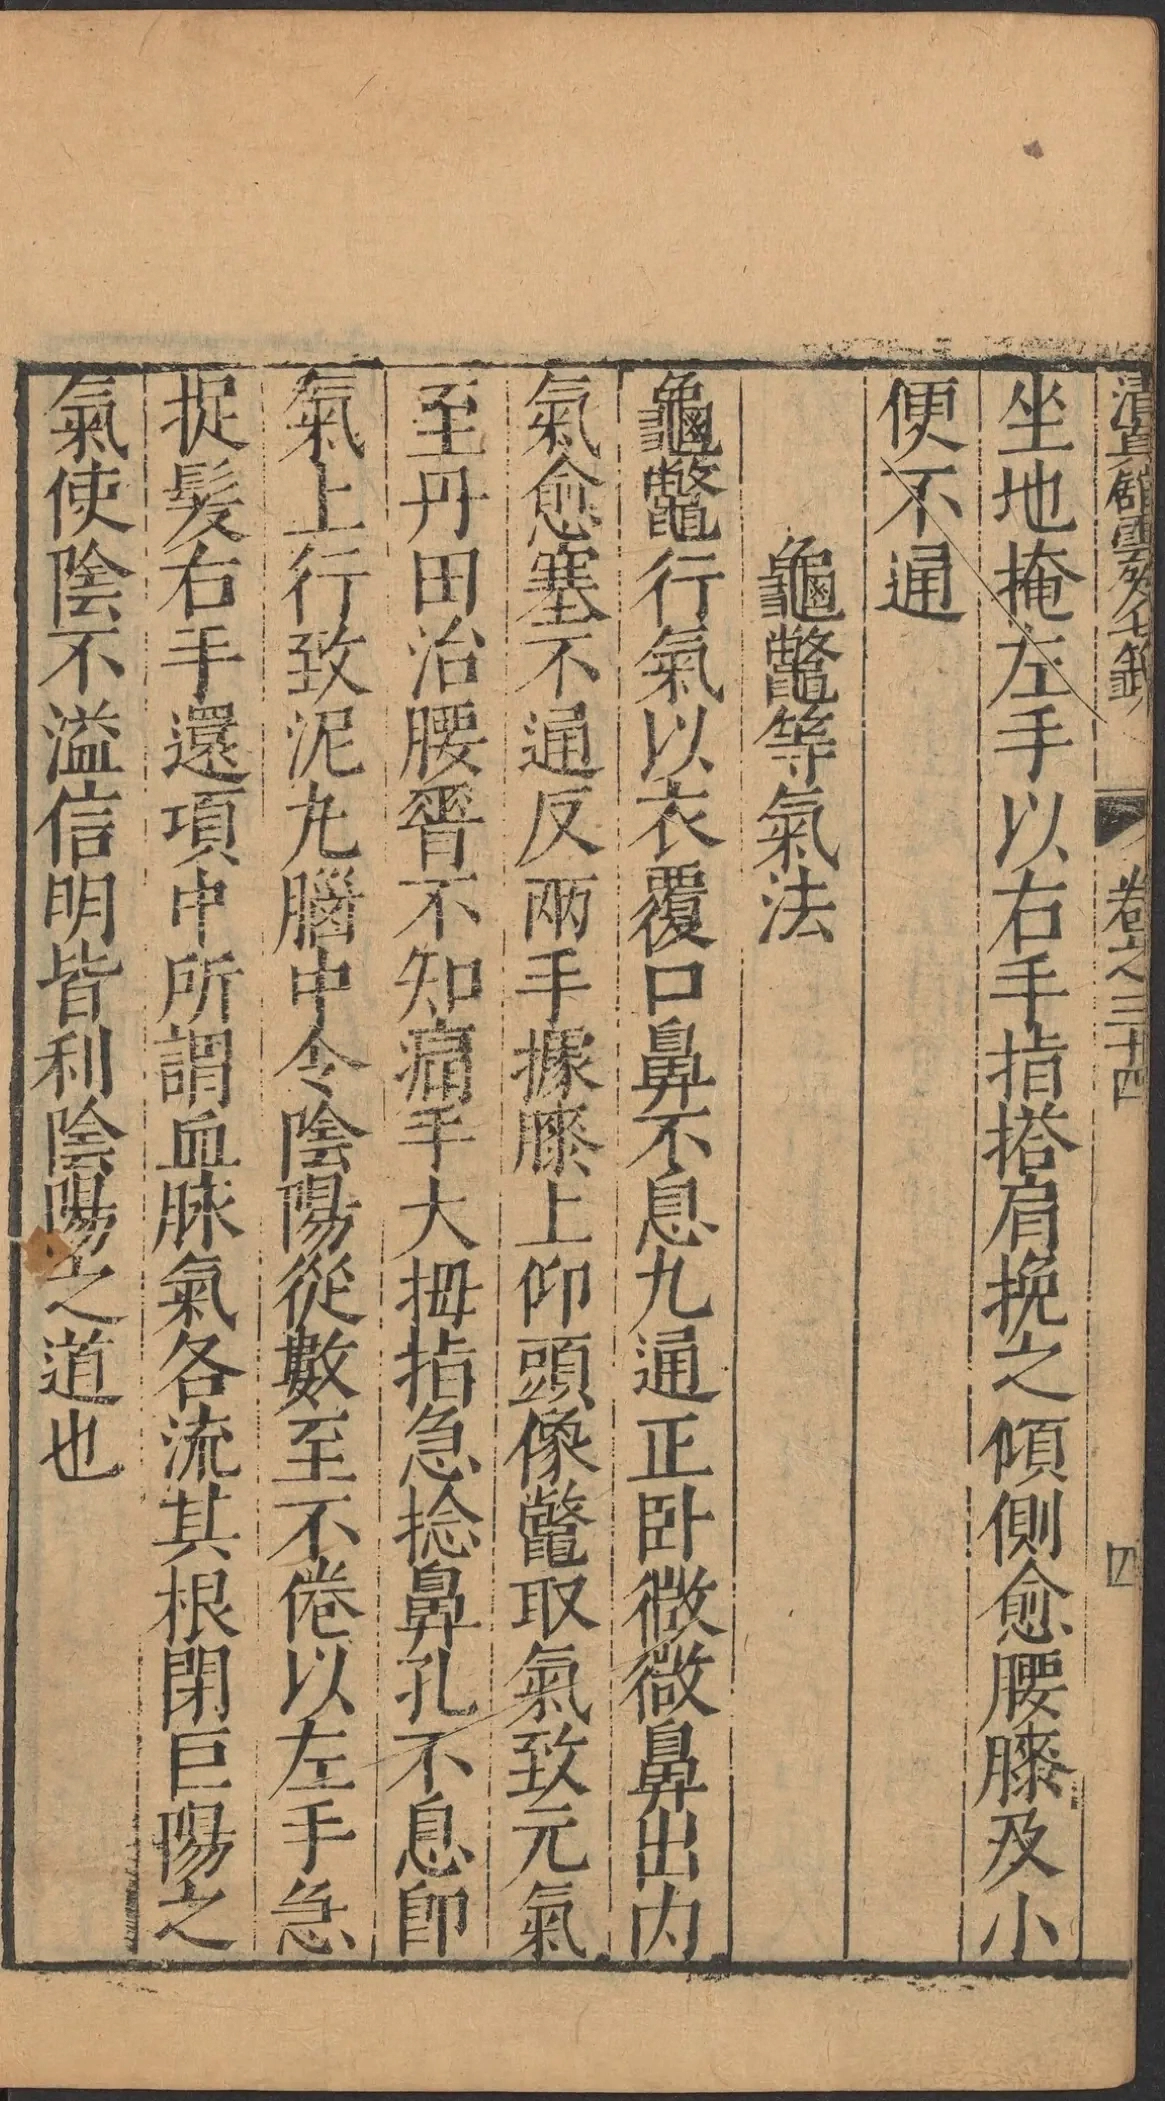 清真館雲笈七籤 卷之三十四 四
坐地掩左手以右手指搭肩挽之傾側愈腰膝及小
便不通
龜鼈等氣法
龜鼈行氣以衣覆口鼻不息九通正卧微微鼻出內
氣愈塞不通反兩手據膝上仰頭像鼈取氣致元氣
至丹田治腰脊不知痛手大拇指急捻鼻孔不息即
氣上行致泥丸腦中令陰陽從數至不倦以左手急
捉髮右手還項中所謂血脉氣各流其根閉巨陽之
氣使陰不溢信明皆利陰陽之道也